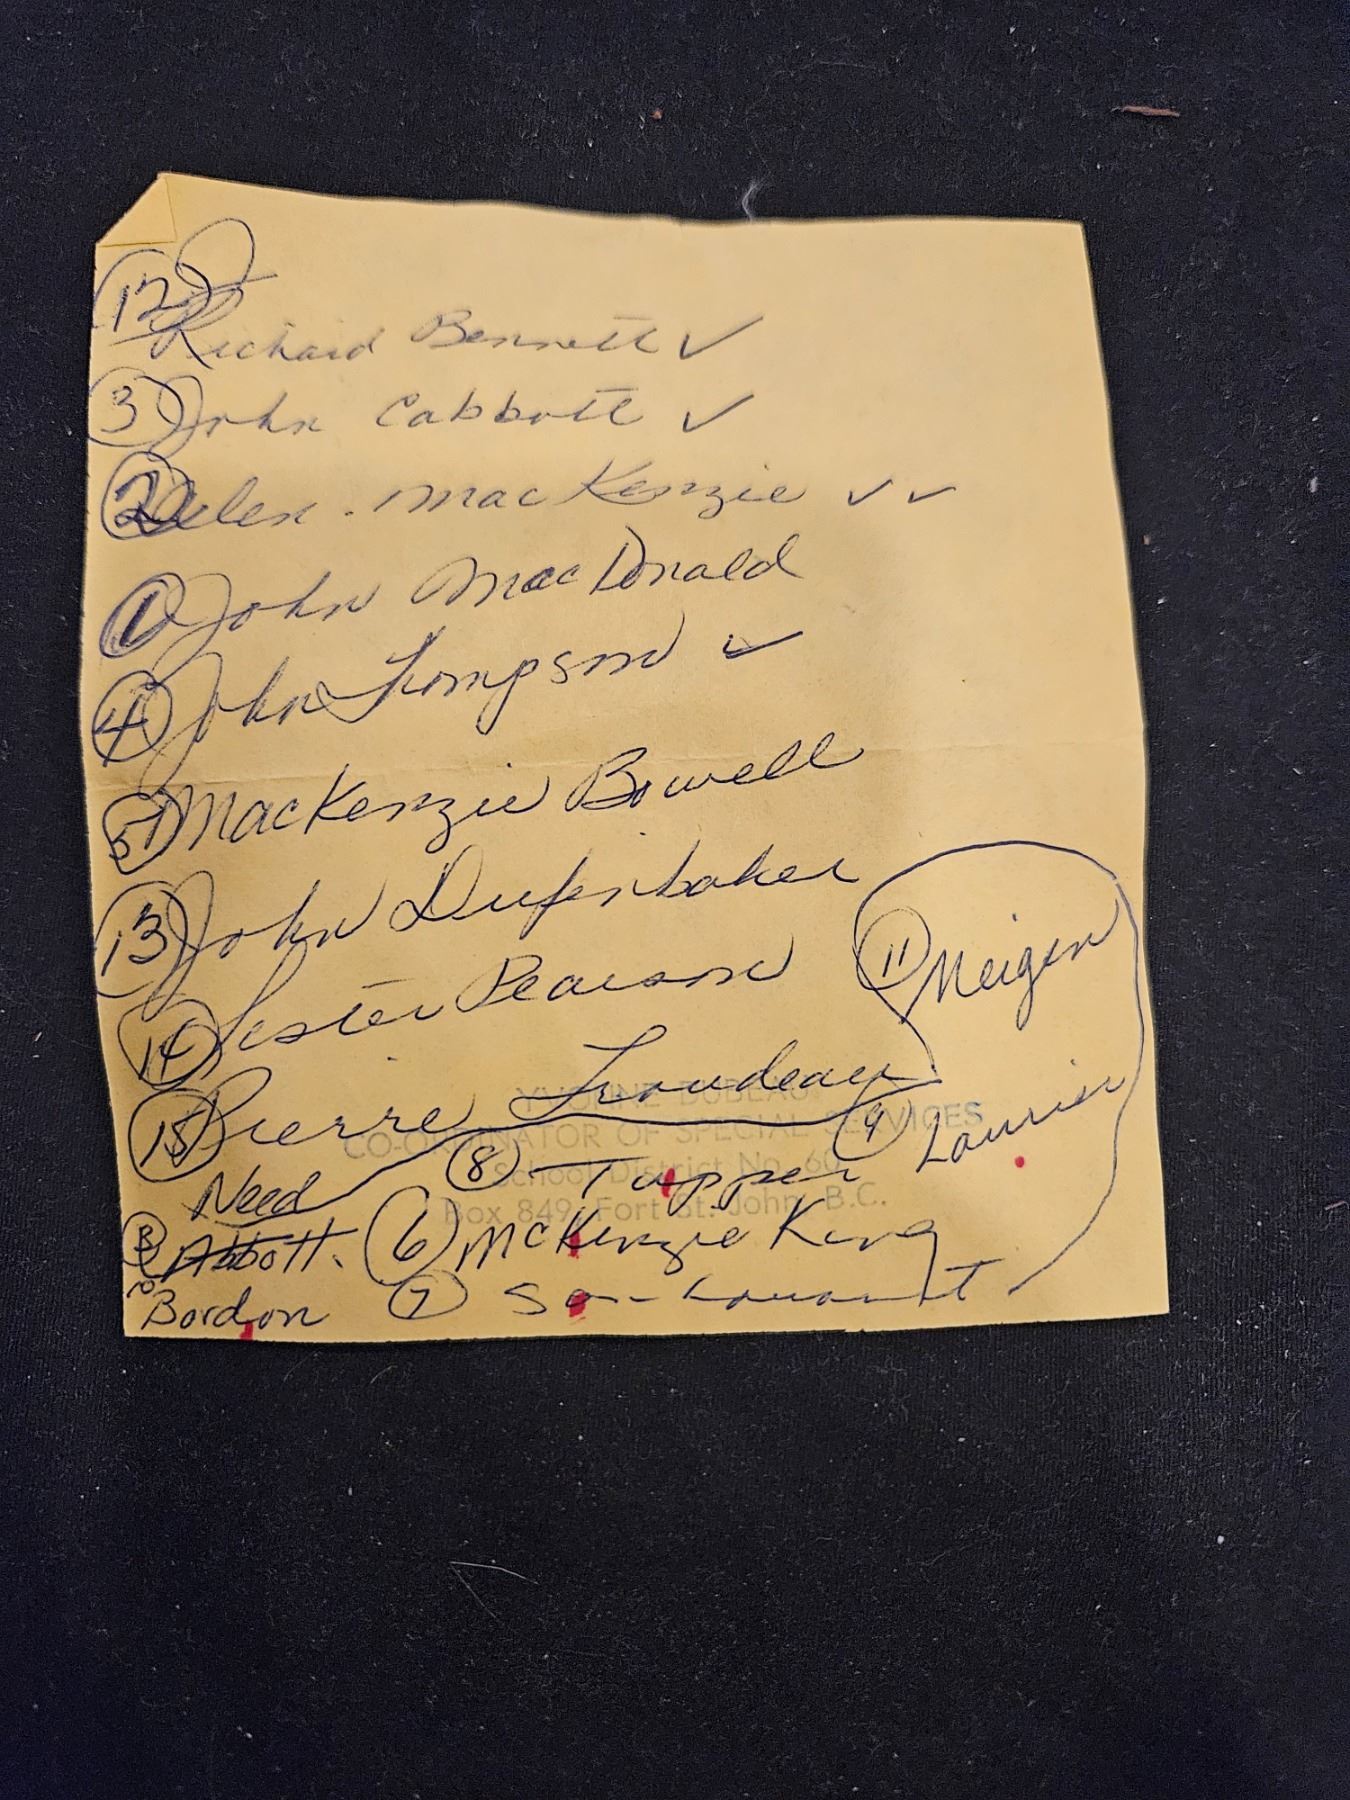 12 Richard Bennett ✓
3 John Cabbott ✓
2 Alex. MacKenzie ✓ ✓
1 John MacDonald
4 John Tompson ✓
5 MacKenzie Bowell
13 John Diefenbaker
14 Lester Pearson
11 Meigen
15 Pierre Troudeau
YVONNE DUBEAU
CO-ORDINATOR OF SPECIAL SERVICES
School District No. 60
Box 849, Fort St. John, B.C.
9 Laurier
Need
8 Tupper
3 Abbott.
6 McKenzie King
10 Bordon
7 St. Laurant